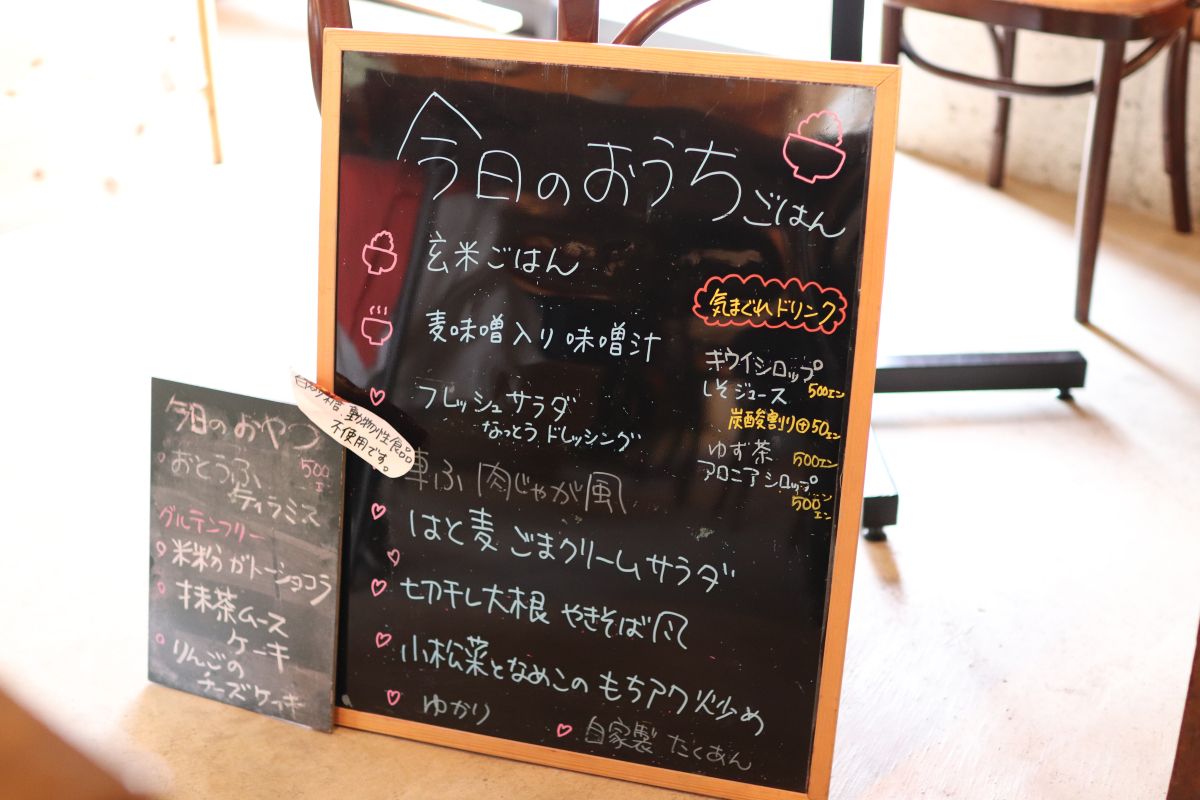 今日のおうちごはん
玄米ごはん
麦味噌入り味噌汁
フレッシュサラダ
なっとうドレッシング
車ふ肉じゃが風
はと麦ごまクリームサラダ
切干し大根 やきそば風
小松菜となめこのもちアワ炒め
ゆかり
自家製たくあん
気まぐれドリンク
キウイシロップ
しそジュース 500エン
炭酸割り⊕50エン
ゆず茶 500エン
アロニアシロップ
500エン
白砂糖・動物性食品
不使用です。
今日のおやつ
おとうふ 500エ
ティラミス
グルテンフリー
米粉ガトーショコラ
抹茶ムース
ケーキ
りんごの
チーズケーキ